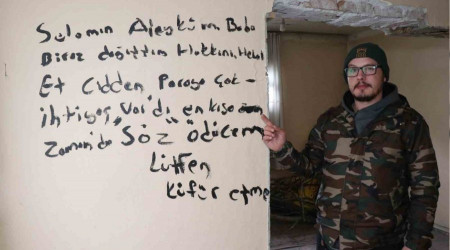 Selamın Aleyküm Baba
Biraz dağıttım Hakkını Helal
Et Cidden Paraya çok
ihtiyaç Var'dı en kısa
Zaman'da "Söz" ödücem
Lütfen
Küfür etme